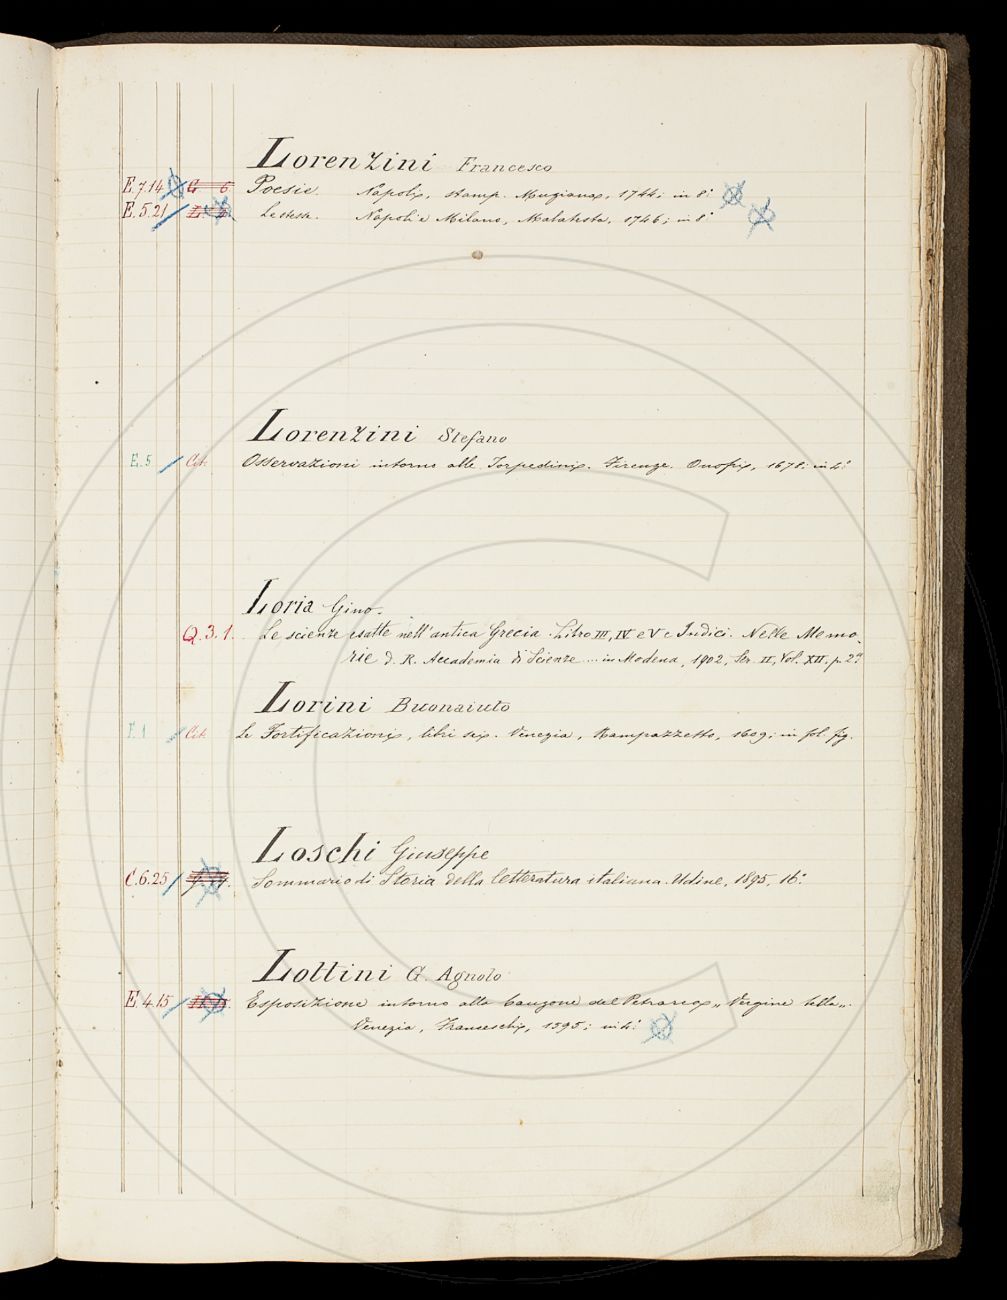 Lorenzini Francesco
E.7.14 G 6 Poesie. Napoli, stamp. Muziana, 1744; in 8.°
E.5.21 Le stesse. Napoli e Milano, Malatesta, 1746; in 8.°
Lorenzini Stefano
E.5 Osservazioni intorno alle Torpedini. Firenze. Onofri, 1678; in 4.°
Loria Gino.
Q.3.1. Le scienze esatte nell'antica Grecia. Libro III, IV e V e Indici. Nelle Memo-
rie d. R. Accademia di Scienze .... in Modena, 1902, Ser. II, Vol. XII, p. 2.a
Lorini Buonaiuto
Le Fortificazioni, libri sei. Venezia, Rampazzetto, 1609; in fol. fig.
Loschi Giuseppe
C.6.25 Sommario di Storia della letteratura italiana. Udine, 1895, 16.°
Lottini G. Agnolo
E 4.15 Esposizione intorno alla Canzone del Petrarca „Vergine bella„.
Venezia, Franceschi, 1595; in 4.°